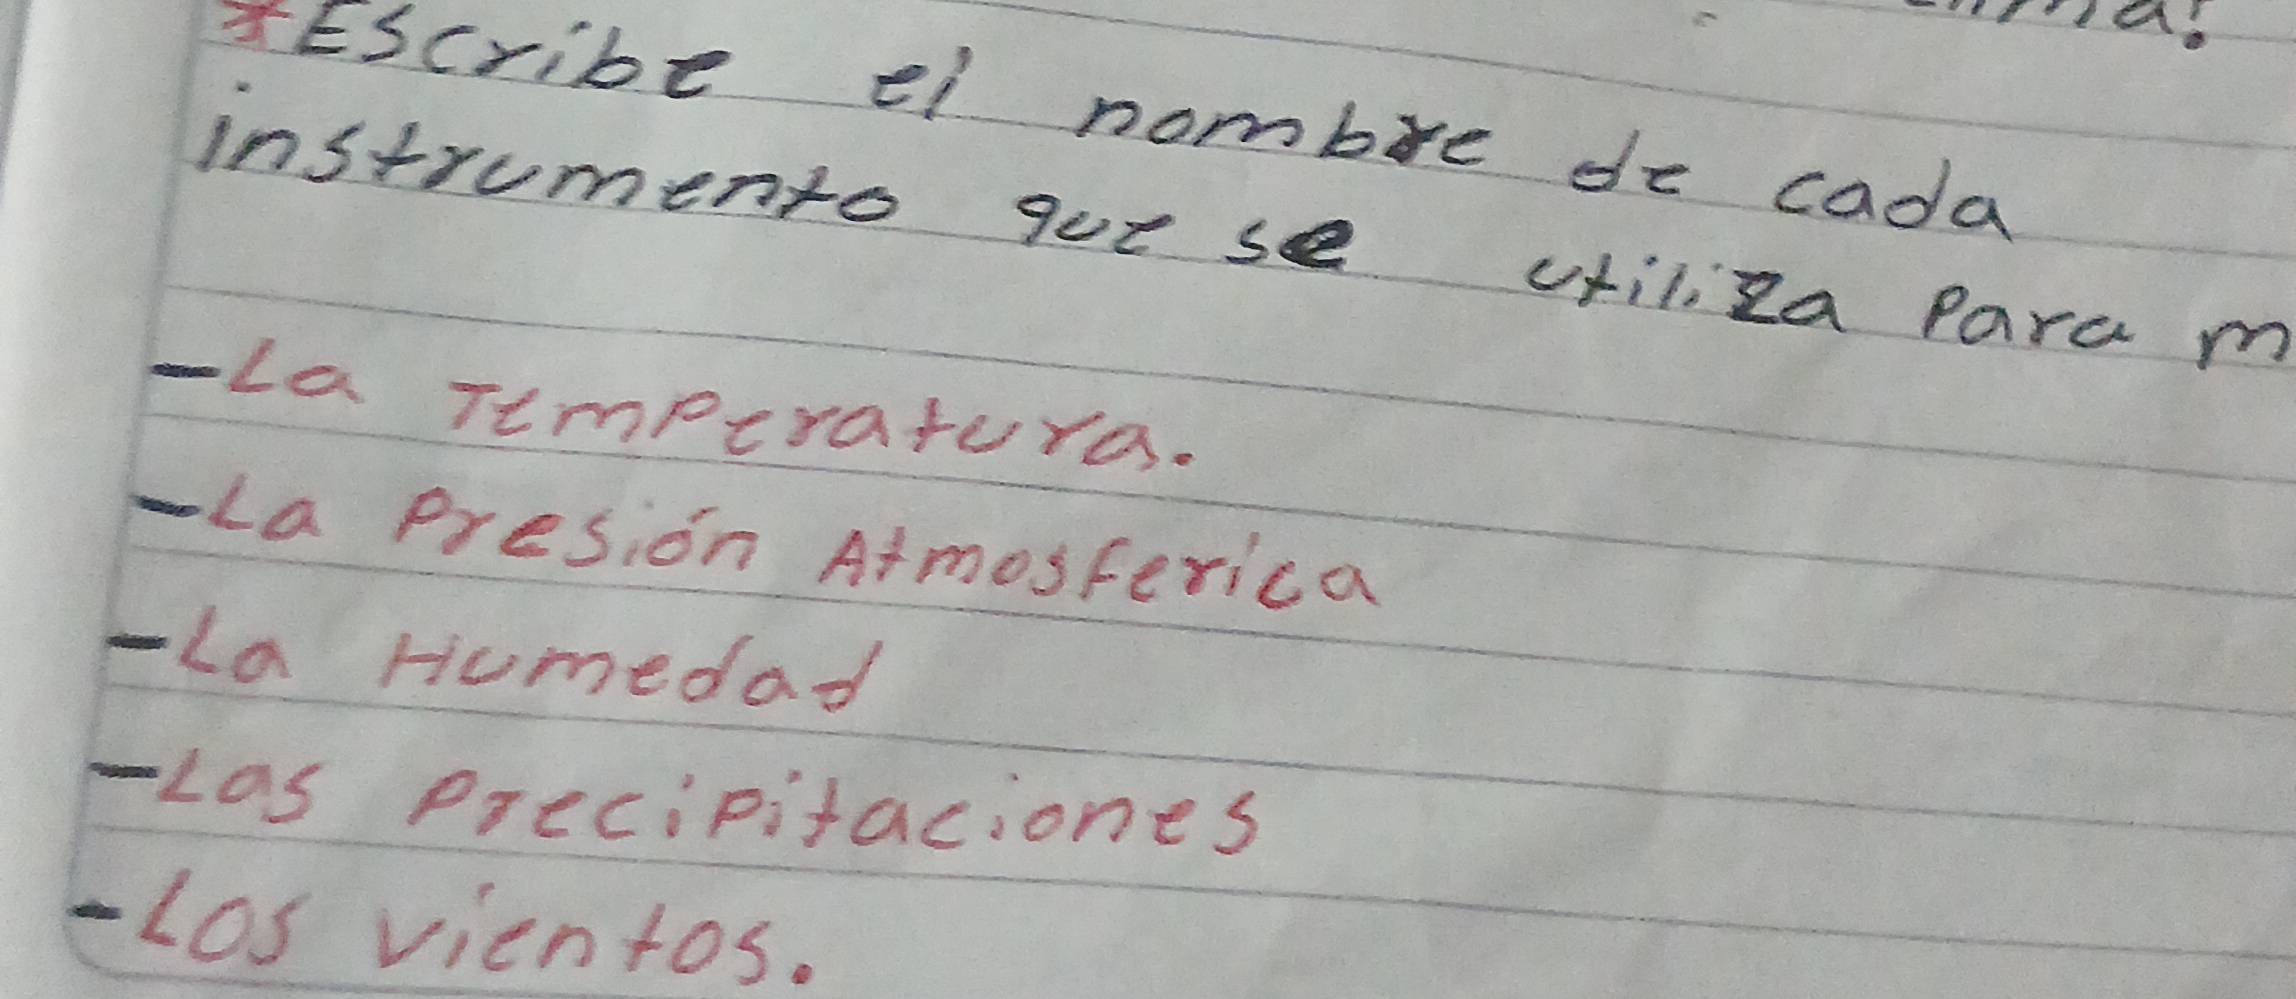 *Escribe el nombre de cada
instrumento que se utiliza para m
-La Temperatura.
-La Presión Atmosferica
-La Humedad
-Las Precipitaciones
-Los vientos.